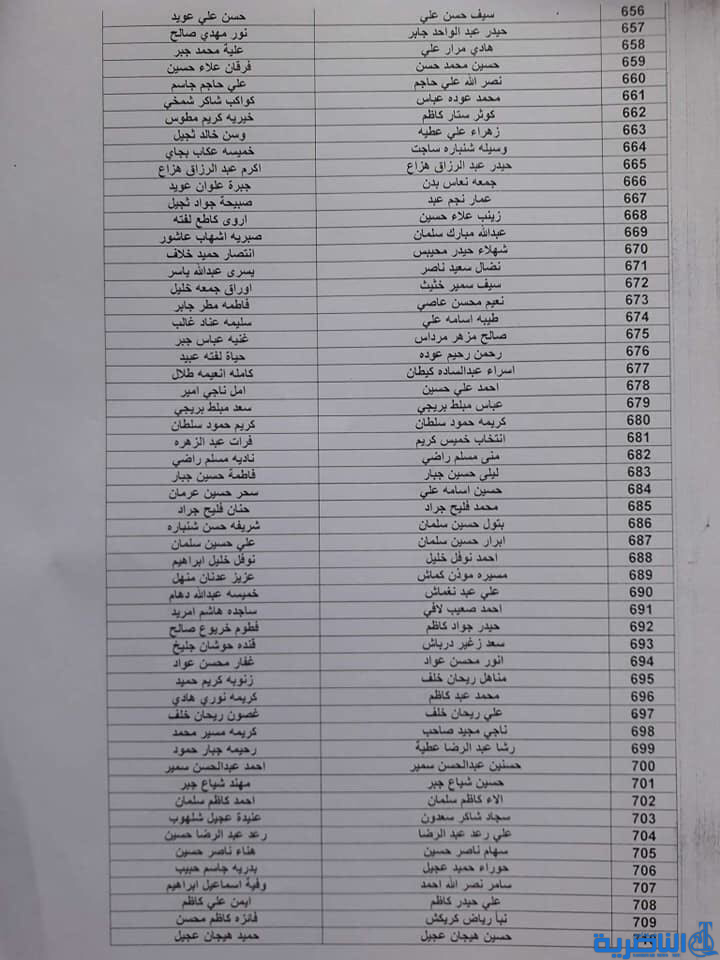 656 سيف حسن علي حسن علي عويد
657 حيدر عبد الواحد جابر نور مهدي صالح
658 هادي مرار علي علية محمد جبر
659 حسين محمد حسن فرقان علاء حسين
660 نصر الله علي حاجم علي حاجم جاسم
661 محمد عوده عباس كواكب شاكر شمخي
662 كوثر ستار كاظم خيريه كريم مطوس
663 زهراء علي عطيه وسن خالد ثجيل
664 وسيله شنباره ساجت خميسه عكاب بجاي
665 حيدر عبد الرزاق هزاع اكرم عبد الرزاق هزاع
666 جمعه نعاس بدن جبرة علوان عويد
667 عمار نجم عبد صبيحة جواد ثجيل
668 زينب علاء حسين اروى كاطع لفته
669 عبدالله مبارك سلمان صبريه اشهاب عاشور
670 شهلاء حيدر محيبس انتصار حميد خلاف
671 نضال سعيد ناصر يسرى عبدالله ياسر
672 سيف سمير خثيث اوراق جمعه خليل
673 نعيم محسن عاصي فاطمه مطر جابر
674 طيبه اسامه علي سليمه عناد غالب
675 صالح مزهر مرداس غنيه عباس جبر
676 رحمن رحيم عوده حياة لفته عبيد
677 اسراء عبدالساده كيطان كامله انعيمه طلال
678 احمد علي حسين امل ناجي امير
679 عباس مبلط بريجي سعد مبلط بريجي
680 كريمه حمود سلطان كريم حمود سلطان
681 انتخاب خميس كريم فرات عبد الزهره
682 منى مسلم راضي ناديه مسلم راضي
683 ليلى حسين جبار فاطمة حسين جبار
684 حسين اسامه علي سحر حسين عرمان
685 محمد فليح جراد حنان فليح جراد
686 بتول حسين سلمان شريفه حسن شنباره
687 ابرار حسين سلمان علي حسين سلمان
688 احمد نوفل خليل نوفل خليل ابراهيم
689 مسيره موذن كماش عزيز عدنان منهل
690 علي عبد نغماش خميسه عبدالله دهام
691 احمد صعيب لافي ساجده هاشم امريد
692 حيدر جواد كاظم فطوم خريوع صالح
693 سعد زغير درباش فنده حوشان جليخ
694 انور محسن عواد غفار محسن عواد
695 مناهل ريحان خلف زنوبه كريم حميد
696 محمد عبد كاظم كريمه نوري هادي
697 علي ريحان خلف غصون ريحان خلف
698 ناجي مجيد صاحب كريمه مسير محمد
699 رشا عبد الرضا عطية رحيمه جبار حمود
700 حسنين عبدالحسن سمير احمد عبدالحسن سمير
701 حسين شياع جبر مهند شياع جبر
702 الاء كاظم سلمان احمد كاظم سلمان
703 سجاد شاكر سعدون عنيدة عجيل شلهوب
704 علي رعد عبد الرضا رعد عبد الرضا حسين
705 سهام ناصر حسين هناء ناصر حسين
706 حوراء حميد عجيل بدريه جاسم حبيب
707 سامر نصر الله احمد وفية اسماعيل ابراهيم
708 علي حيدر كاظم ايمن علي كاظم
709 نبأ رياض كريكش فائزه كاظم محسن
710 حسين هيجان عجيل حميد هيجان عجيل
الناصرية